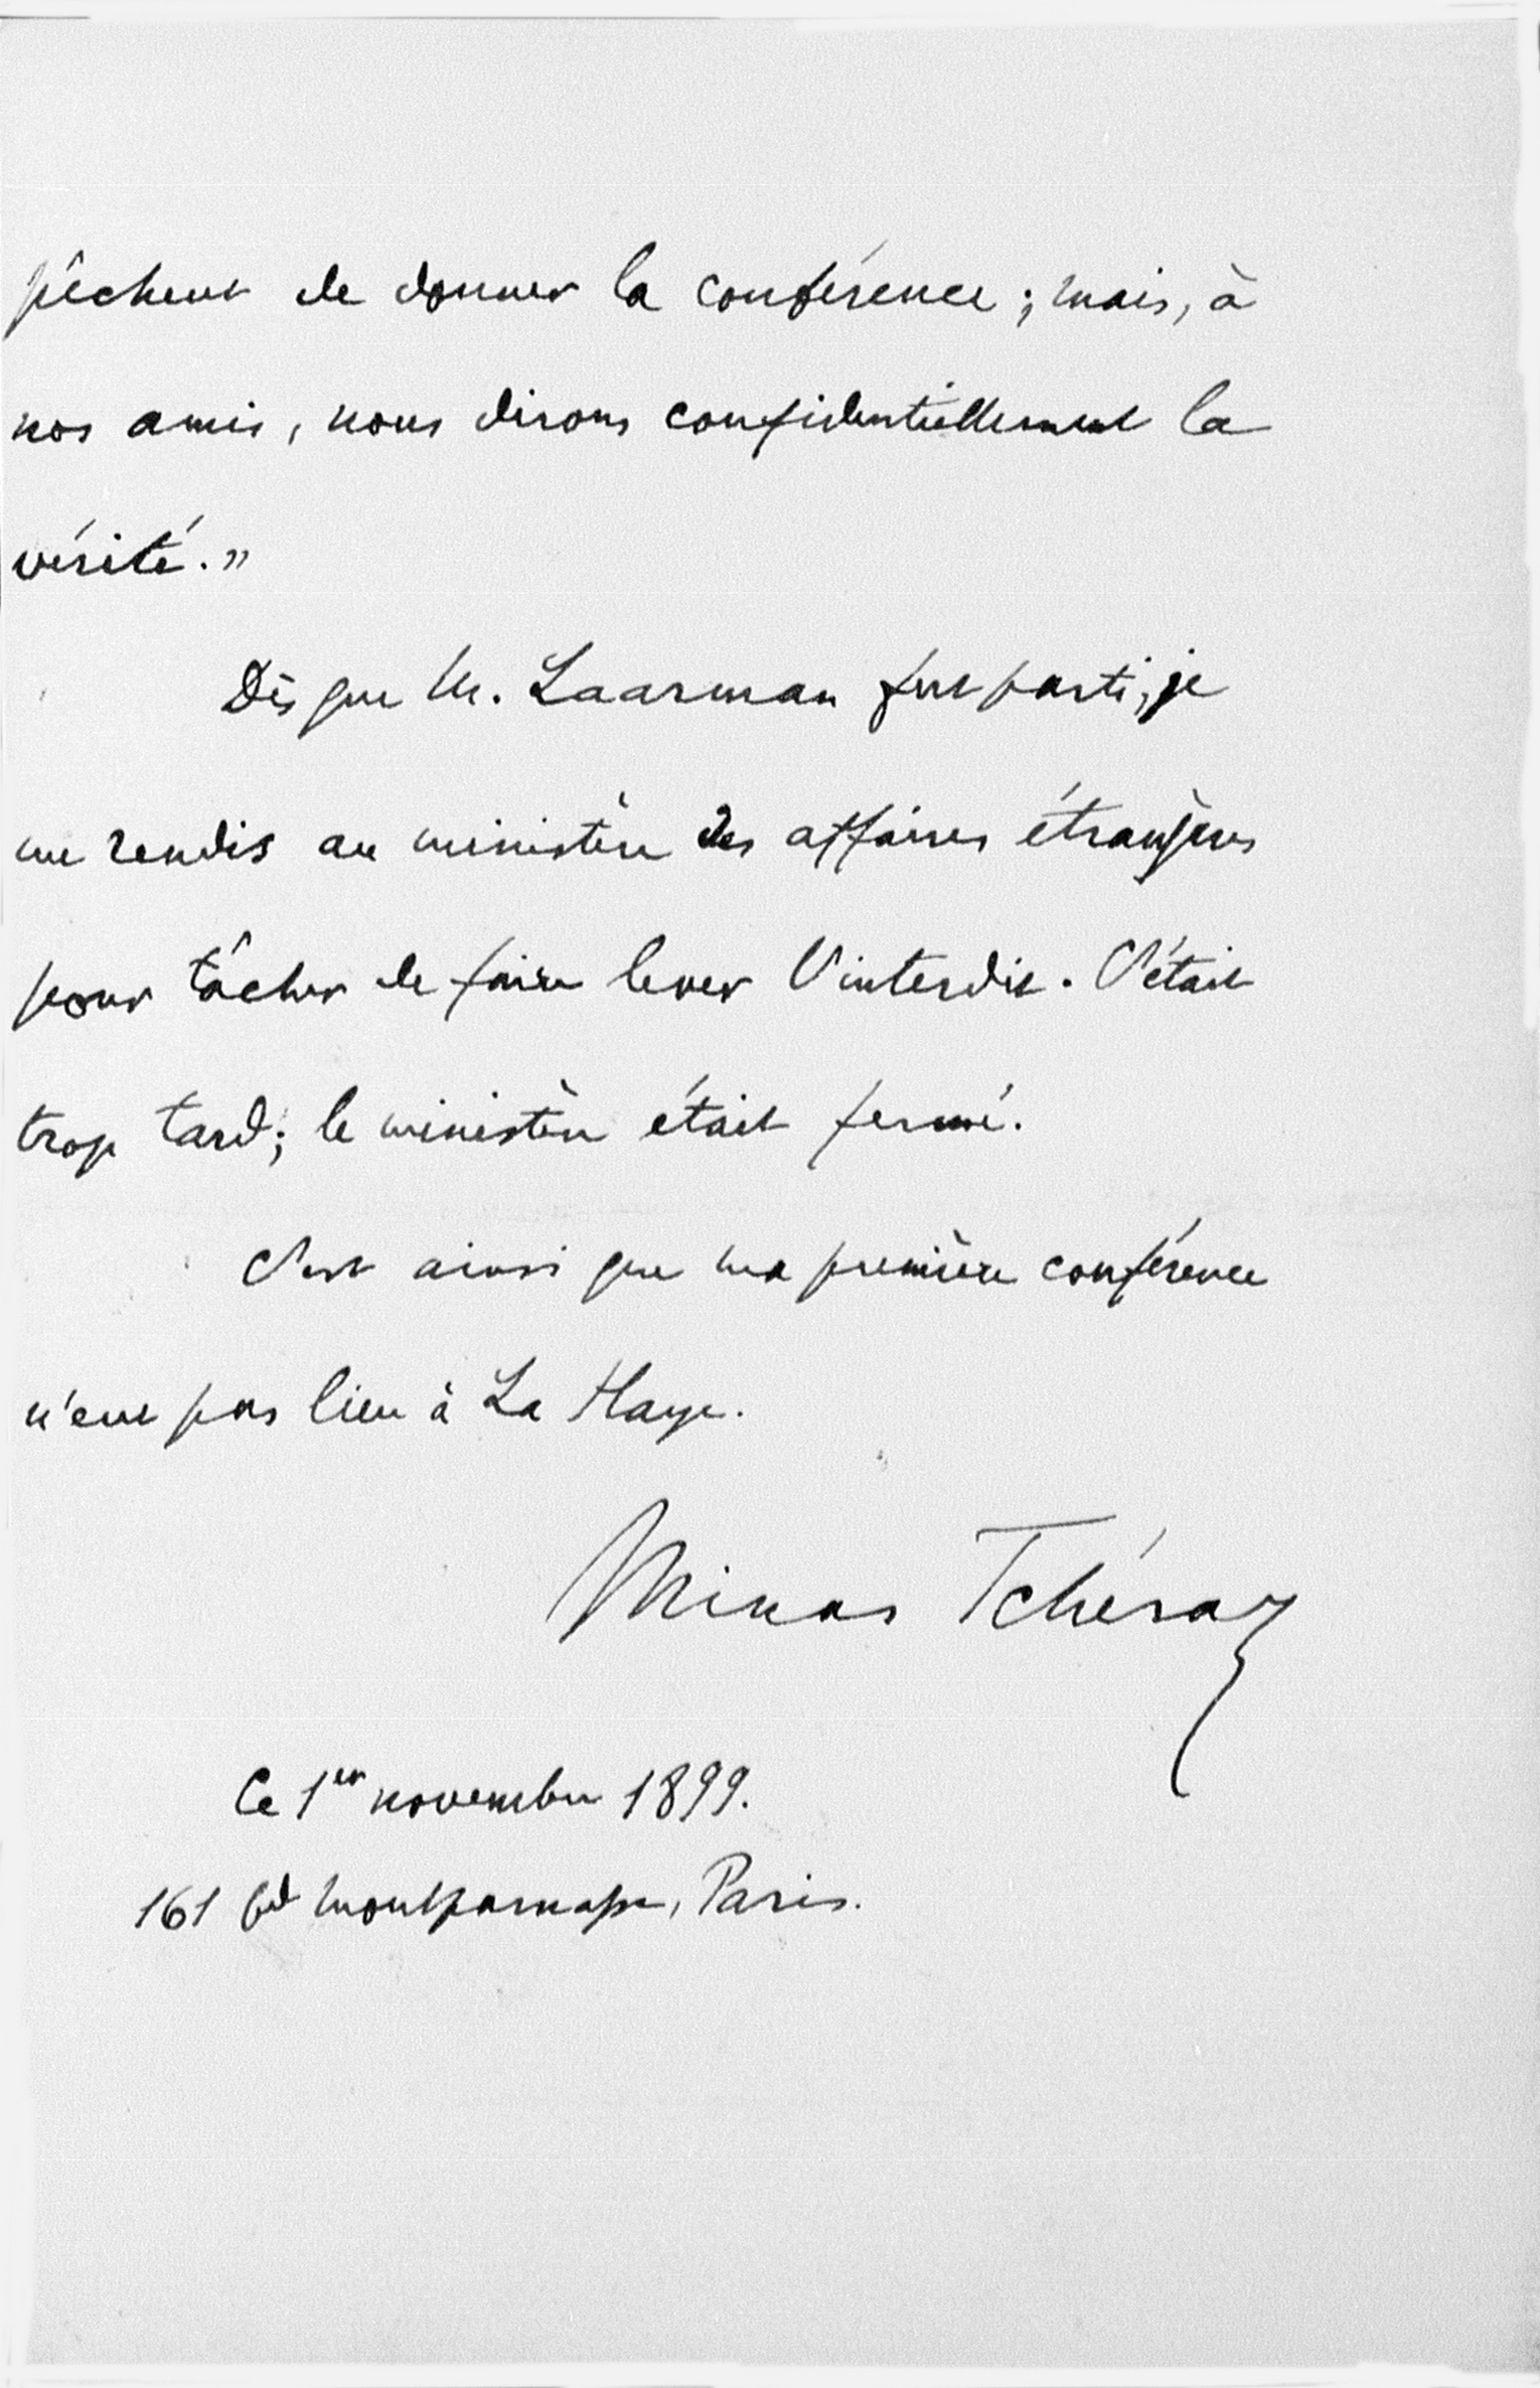 pêchent de donner la conférence ; mais, à
nos amis, nous dirons confidentiellement la
vérité. »
Dès que M. Laarman fut parti, je
me rendis au ministère des affaires étrangères
pour tâcher de faire lever l'interdit. C'était
trop tard ; le ministère était fermé.
C'est ainsi que ma première conférence
n'eut pas lieu à La Haye.
Minas Tchéraz
Ce 1er novembre 1899.
161 bd Montparnasse, Paris.